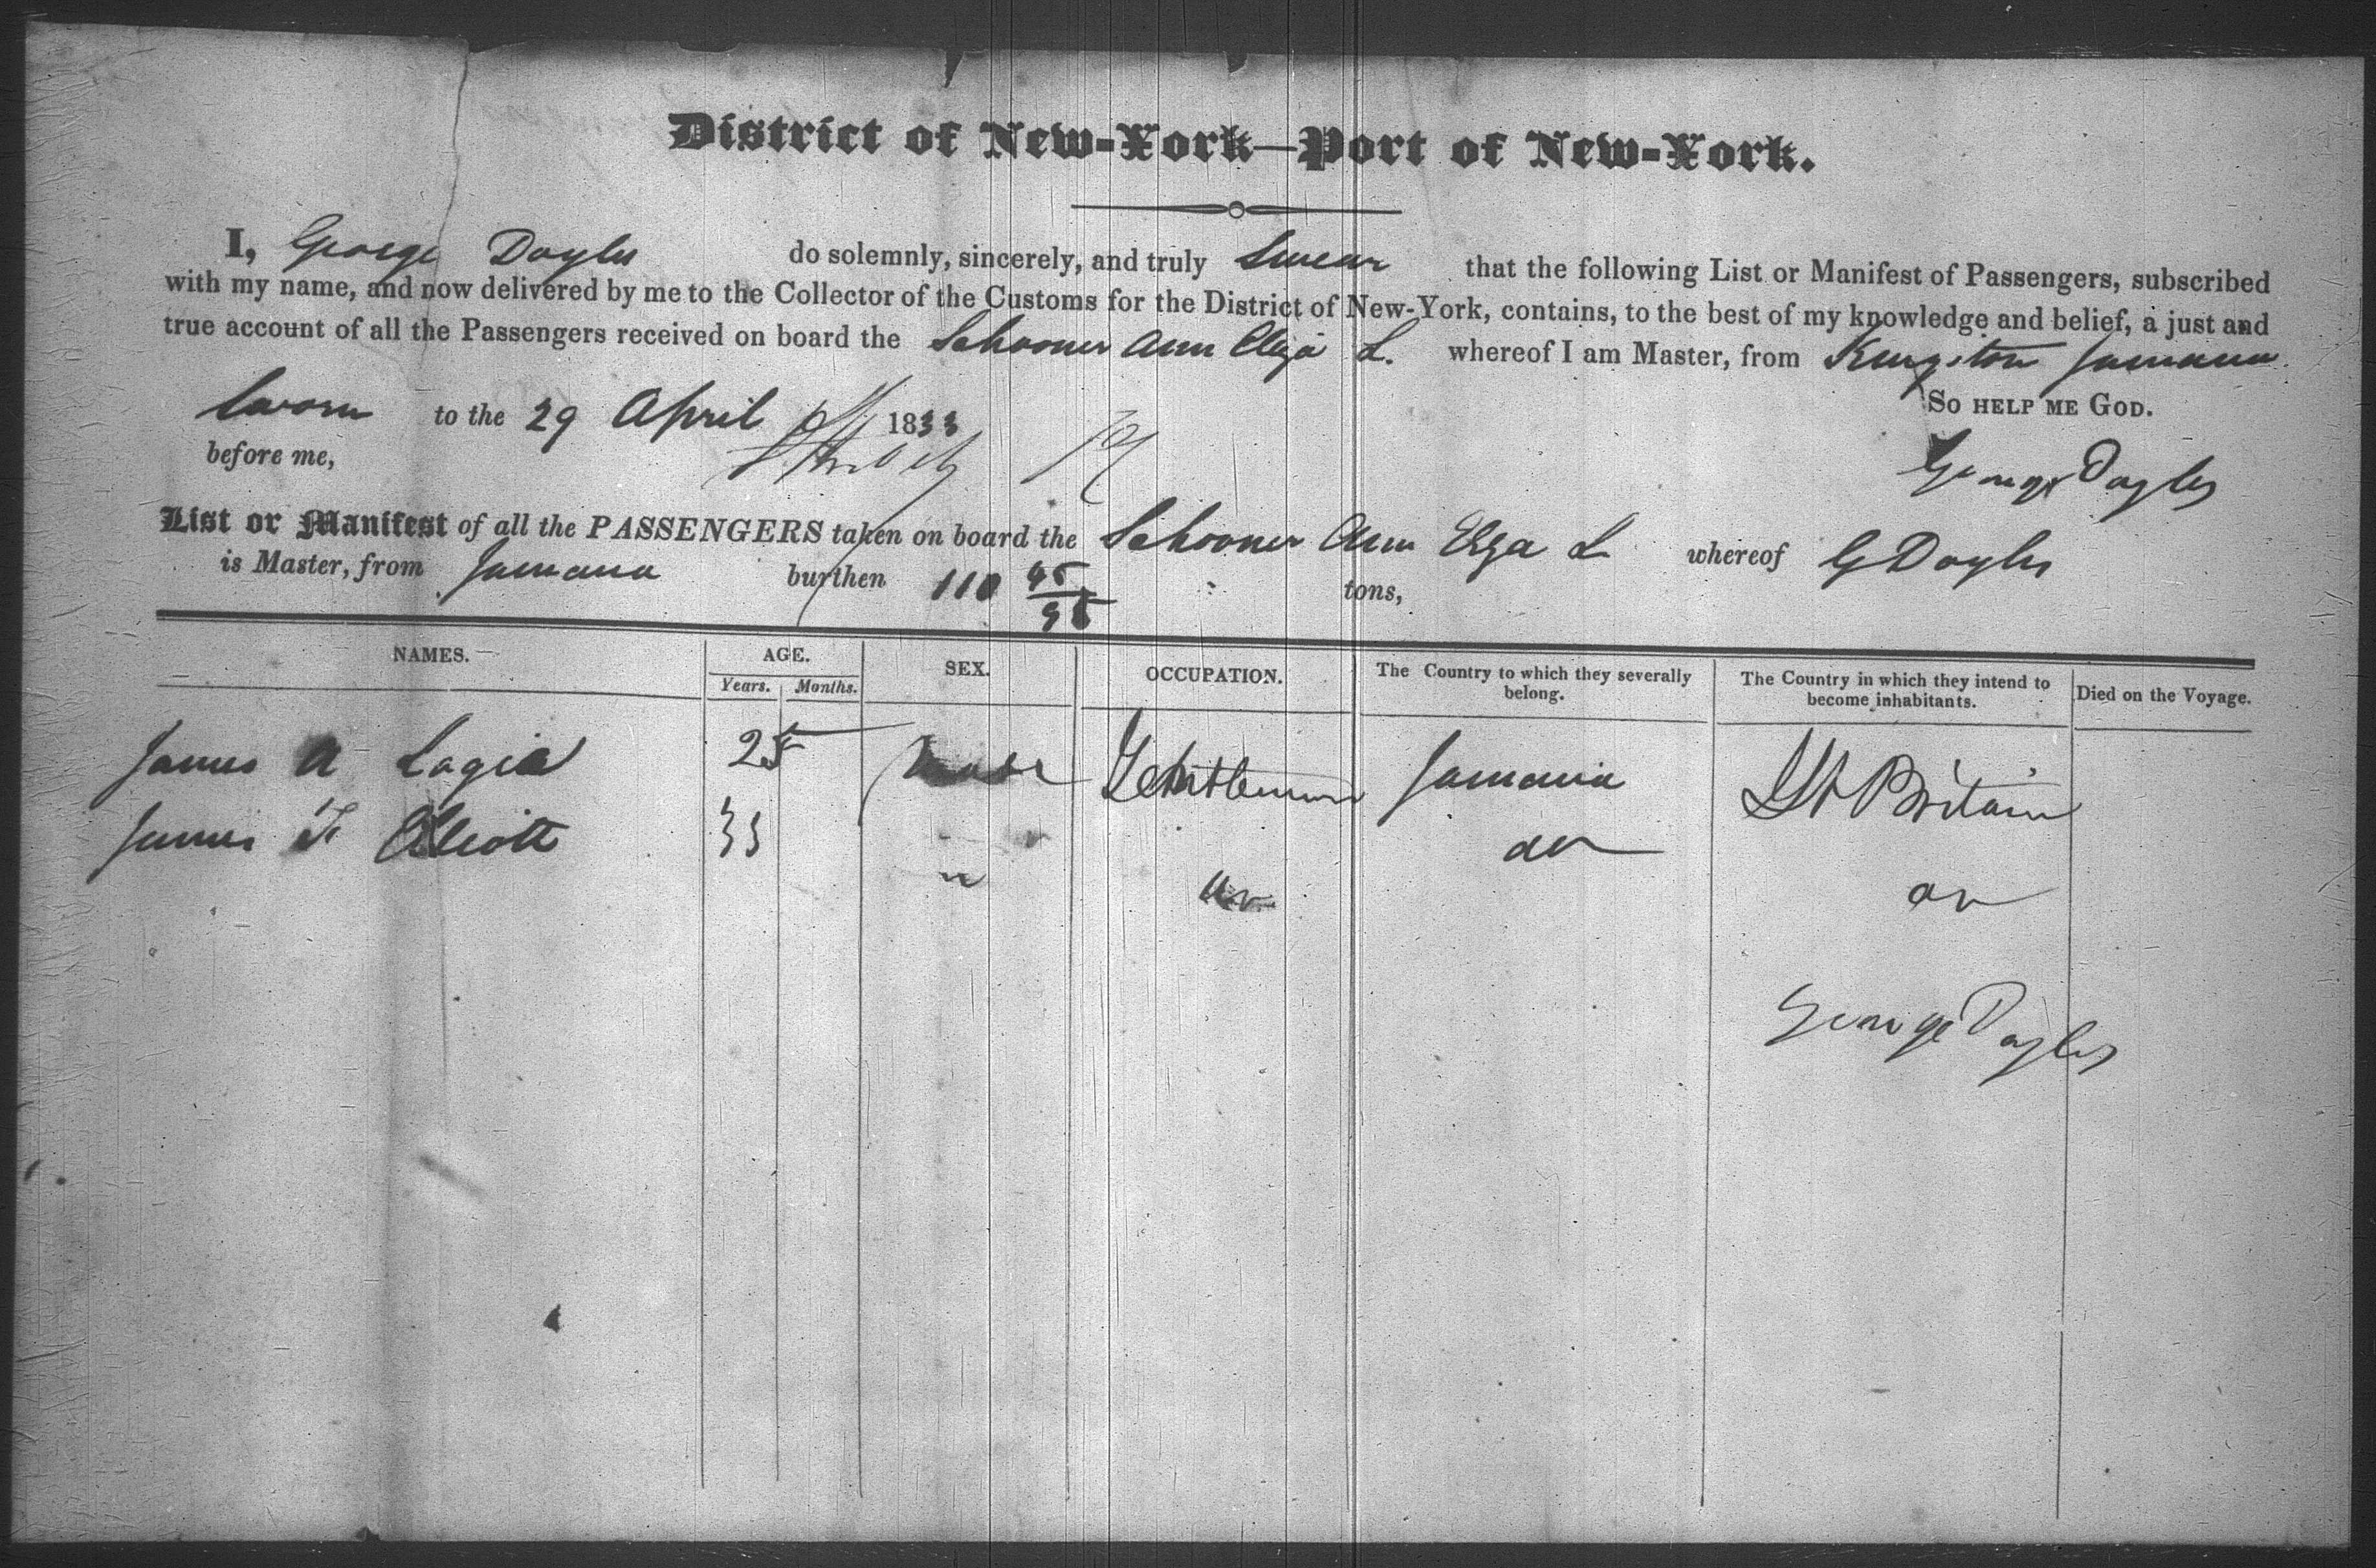 District of New-York—Port of New-York.
I, George Dayles do solemnly, sincerely, and truly Swear that the following List or Manifest of Passengers, subscribed
with my name, and now delivered by me to the Collector of the Customs for the District of New-York, contains, to the best of my knowledge and belief, a just and
true account of all the Passengers received on board the Schooner Ann Eliza L. whereof I am Master, from Kingston Jamaica
So HELP ME GOD.
Sworn to the 29 April 1833
before me,
George Dayles
List or Manifest of all the PASSENGERS taken on board the Schooner Ann Elza L whereof G Dayles
is Master, from Jamaica burthen 110 45/95 tons,
NAMES. AGE. SEX. OCCUPATION. The Country to which they severally belong. The Country in which they intend to become inhabitants. Died on the Voyage.
Years. Months.
James A 25 Male Gentleman Jamaica Gt Britain
James Elliott 33 do
George Dayles